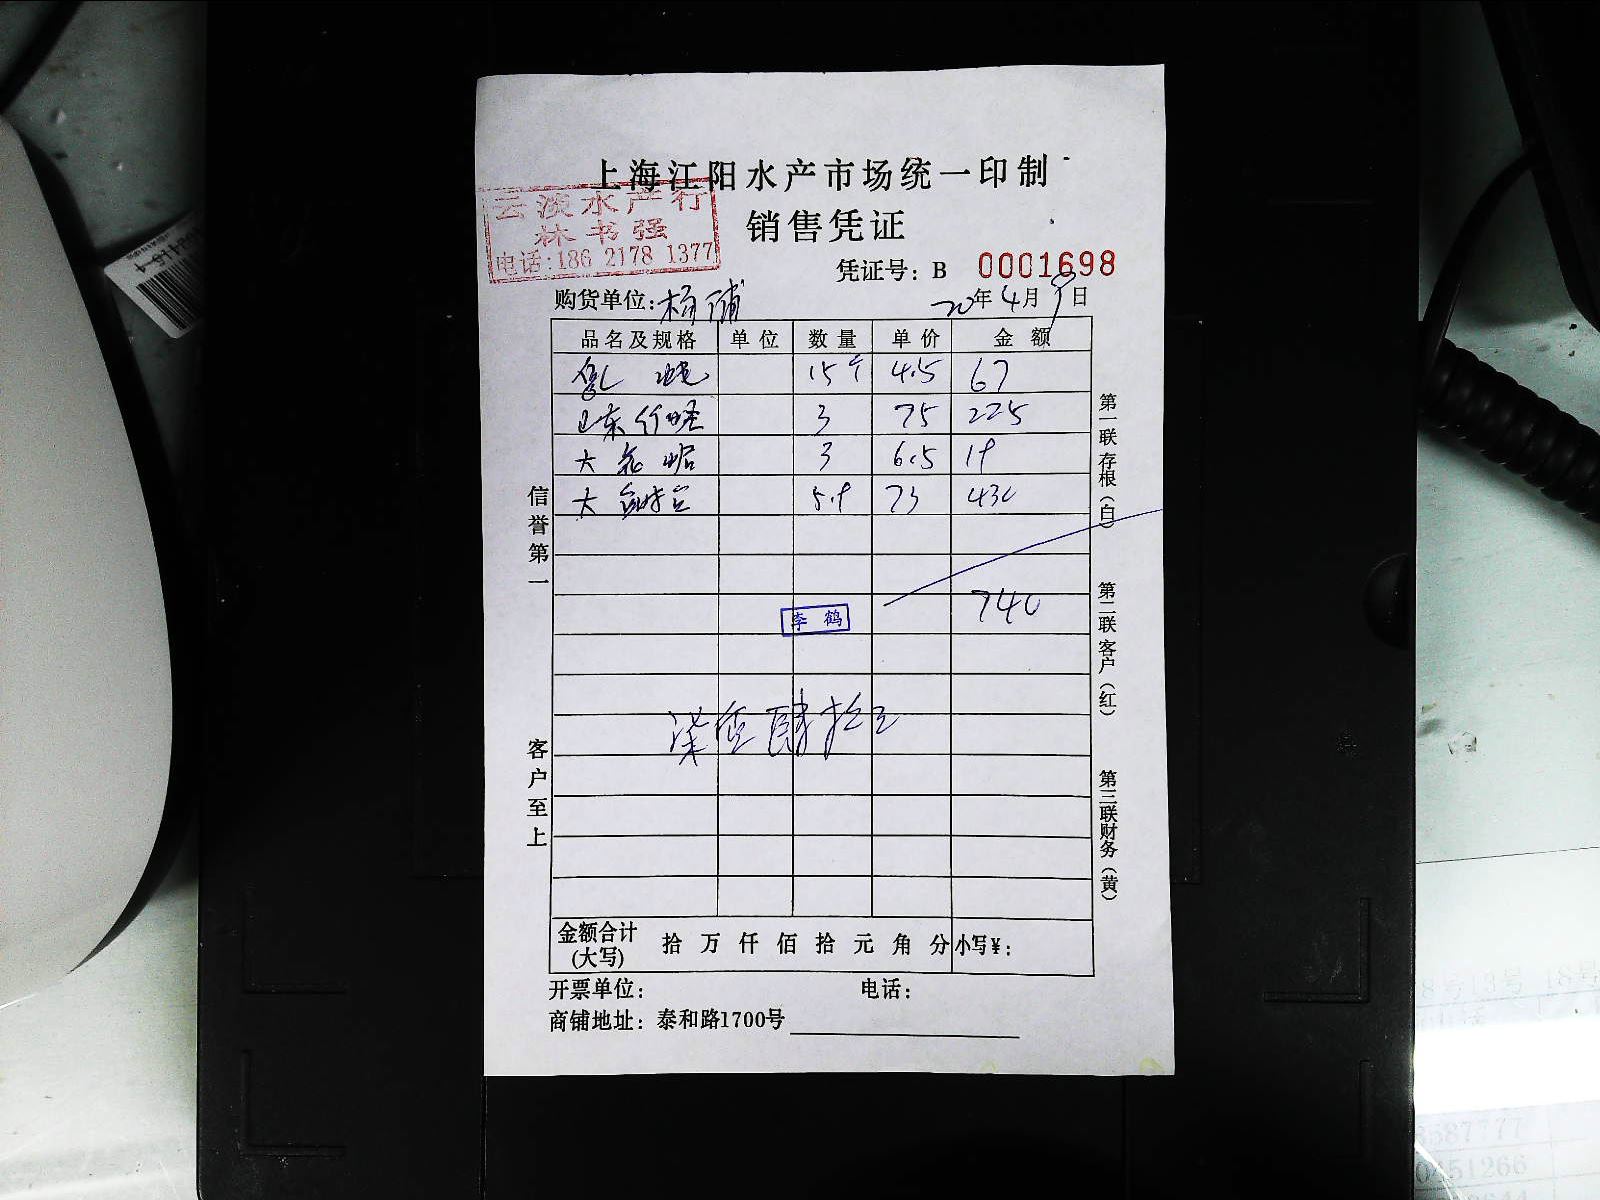 上海江阳水产市场统一印制
云淡水产行
林书强
电话:186 2178 1377
销售凭证
凭证号: B 0001698
购货单位: 杨浦
20年4月9日
品名及规格 单位 数量 单价 金额
15斤 4.5 67
山东 3 75 225
大 3 6.5 19
大 5.9 73 430
740
李鹤
柒佰肆拾元
信誉第一
客户至上
第一联存根(白)
第二联客户(红)
第三联财务(黄)
金额合计(大写) 拾 万 仟 佰 拾 元 角 分 小写¥:
开票单位: 电话:
商铺地址: 泰和路1700号
8587777
0451266